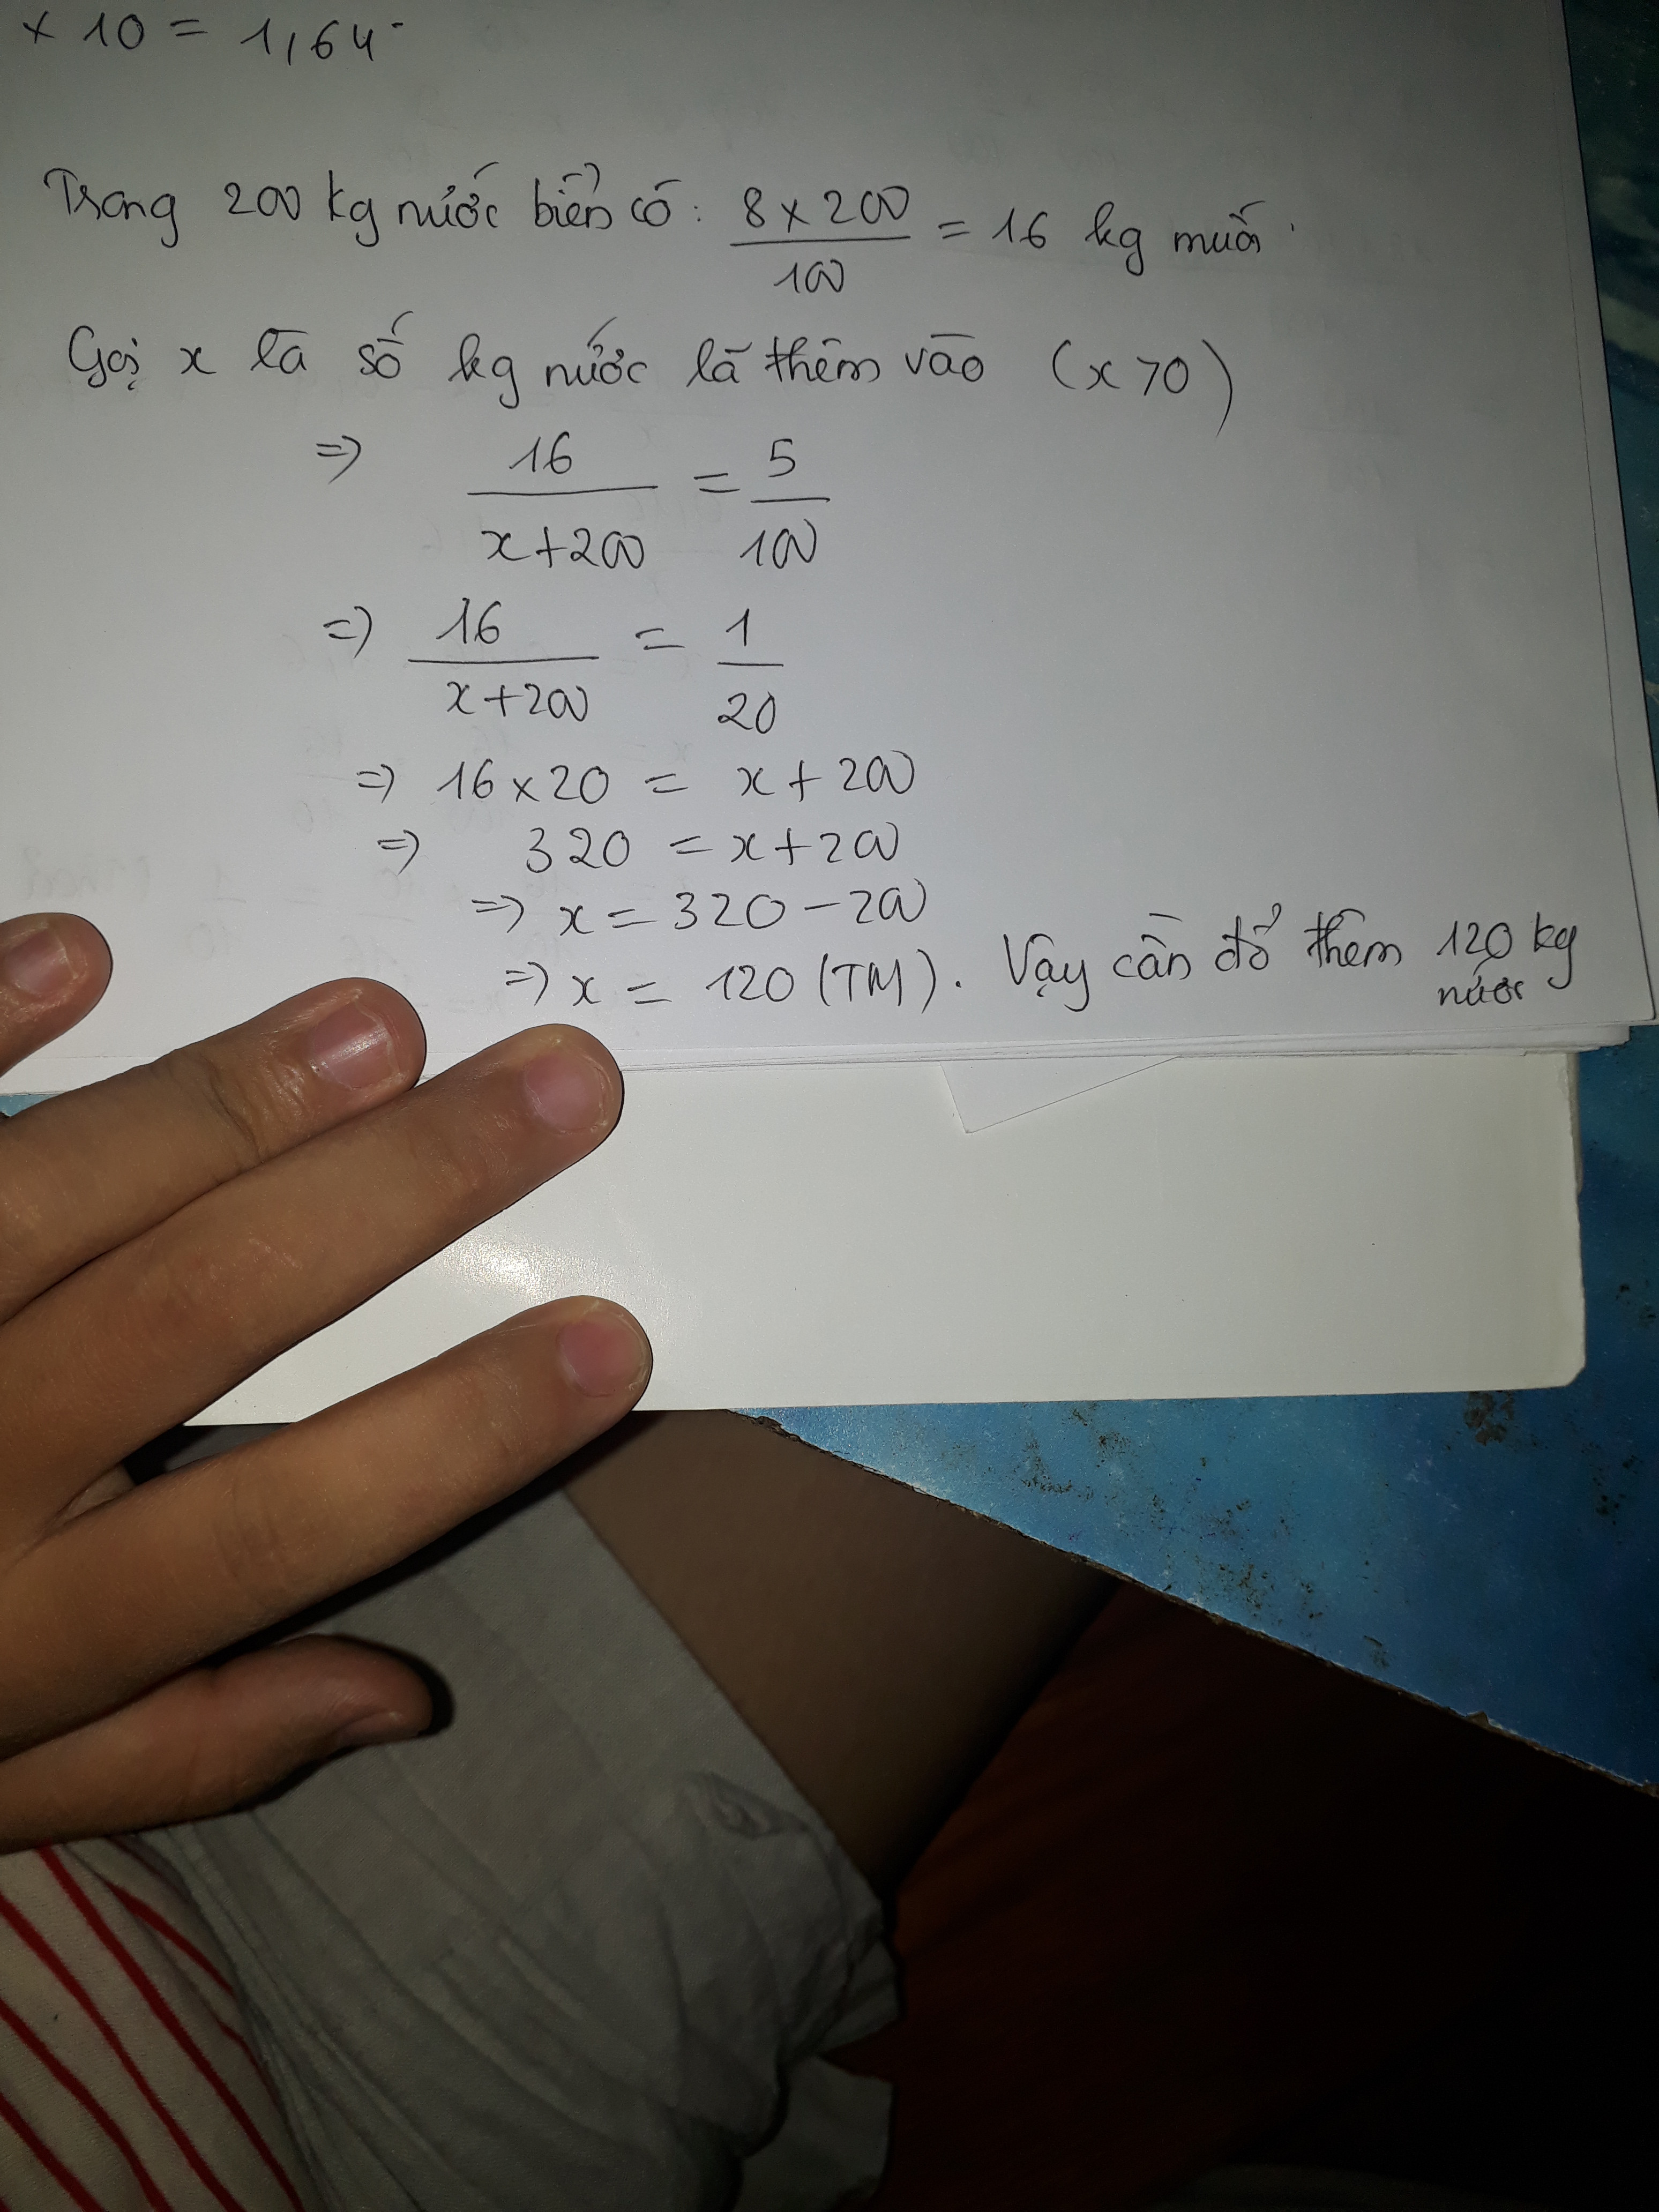 x 10 = 1,64
Trong 200 kg nước biển có: 8 x 200 / 100 = 16 kg muối
Gọi x là số kg nước lã thêm vào (x > 0)
=> 16 / x+200 = 5 / 100
=> 16 / x+200 = 1 / 20
=> 16 x 20 = x + 200
=> 320 = x + 200
=> x = 320 - 200
=> x = 120 (TM). Vậy cần đổ thêm 120 kg
nước